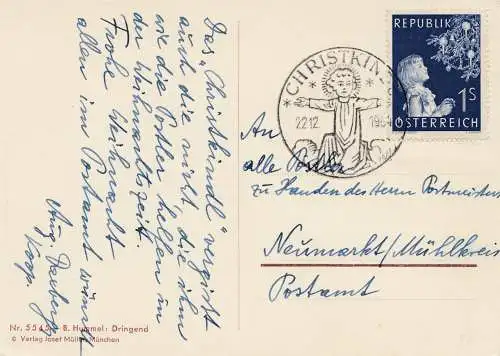 Das „Christkindl" vergisst
auch die nicht, die ihm
wie die Postler helfen in
der Weihnachtszeit.
Frohe Weihnacht
allen im Postamt wünscht
Aug.
Kopp.
Nr. 5545 B. Hummel: Dringend
© Verlag Josef Müller, München
CHRISTKINDL
22.12. 1954
REPUBLIK
1S
ÖSTERREICH
An
alle Postler
zu Handen des Herrn Postmeisters
Neumarkt/Mühlkreis
Postamt